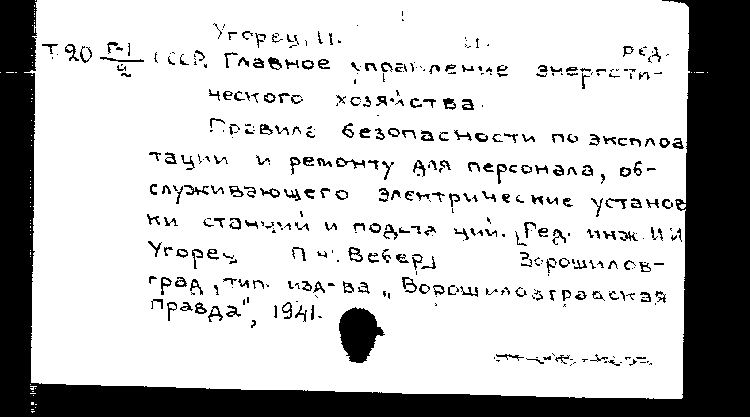 Угорец, И. И. ред.
Т20 Г-1/2 СССР. Главное управление энергети-
ческого хозяйства.
Правила безопасности по эксплоа
тации и ремонту для персонала, об-
служивающего электрические установ
ки станций и подстанций. [Ред. инж. И И
Угорец П Ф. Вебер] Ворошилов-
град, тип. изд-ва „Ворошиловградская
правда", 1941.